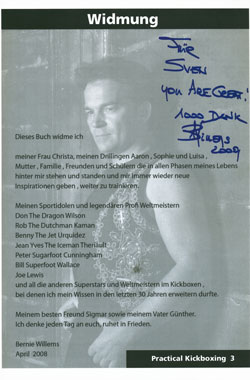 Widmung
Für
Sven
you Are Great!
1000 Dank
2009
Dieses Buch widme ich
meiner Frau Christa, meinen Drillingen Aaron , Sophie und Luisa ,
Mutter , Familie , Freunden und Schülern die in allen Phasen meines Lebens
hinter mir stehen und standen und mir immer wieder neue
Inspirationen geben , weiter zu trainieren.
Meinen Sportidolen und legendären Profi Weltmeistern
Don The Dragon Wilson
Rob The Dutchman Kaman
Benny The Jet Urquidez
Jean Yves The Iceman Theriault
Peter Sugarfoot Cunningham
Bill Superfoot Wallace
Joe Lewis
und all die anderen Superstars und Weltmeistern im Kickboxen ,
bei denen ich mein Wissen in den letzten 30 Jahren erweitern durfte.
Meinem besten Freund Sigmar sowie meinem Vater Günther.
Ich denke jeden Tag an euch, ruhet in Frieden.
Bernie Willems
April 2008
Practical Kickboxing 3